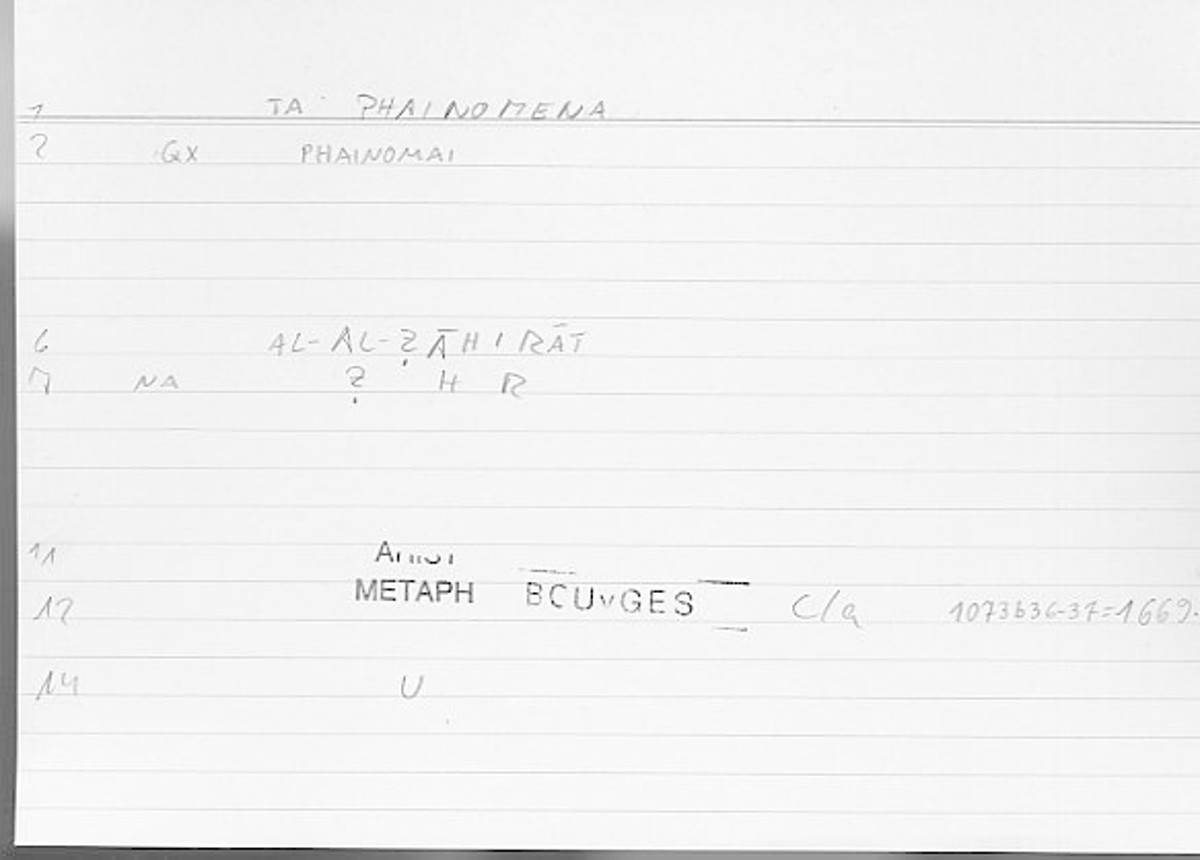 1 TA PHAINOMENA
2 GX PHAINOMAI
6 AL-AL-ẒĀHIRĀT
7 NA Ẓ H R
11
METAPH BCUvGES
12 C/a 1073b36-37=1669.
14 U